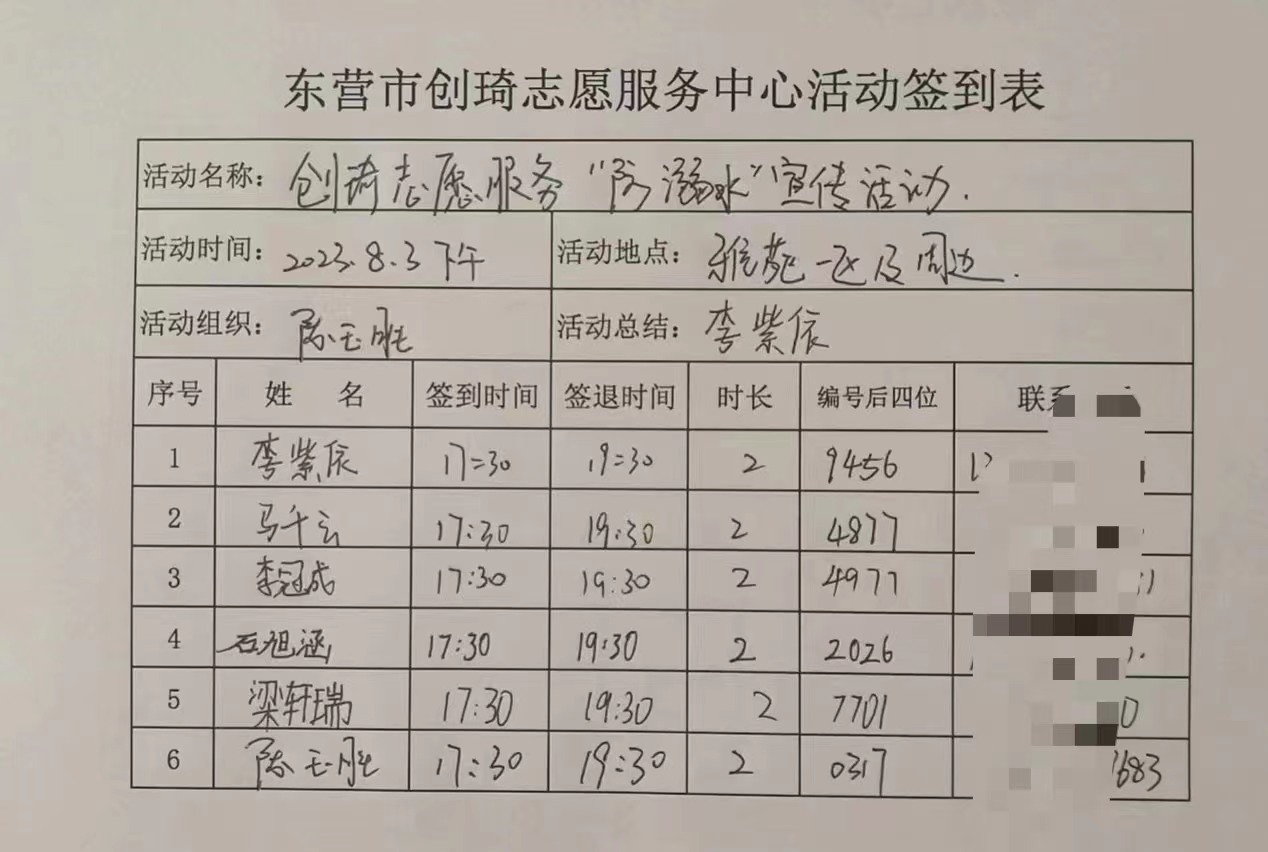 东营市创琦志愿服务中心活动签到表
活动名称: 创琦志愿服务“防溺水”宣传活动.
活动时间: 2023.8.3下午 活动地点: 雅苑一区及周边.
活动组织: 陈玉胜 活动总结: 李紫依
序号 姓 名 签到时间 签退时间 时长 编号后四位 联系
1 李紫依 17:30 19:30 2 9456
2 马千云 17:30 19:30 2 4877
3 李冠成 17:30 19:30 2 4977
4 石旭涵 17:30 19:30 2 2026
5 梁轩瑞 17:30 19:30 2 7701
6 陈玉胜 17:30 19:30 2 0317 683